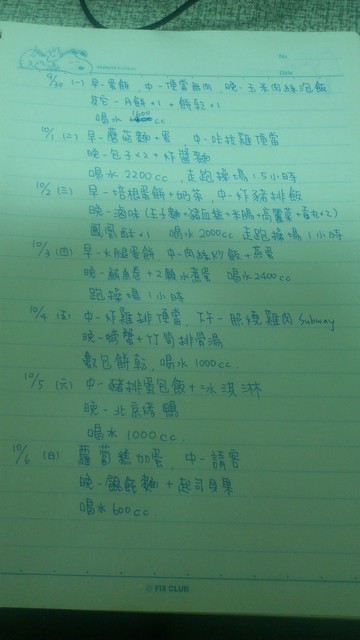 No.
Date
9/30 (一) 早-蛋餅,中-便當無肉,晚-玉米肉絲泡飯
餅×1 + 餅乾×1
喝水 1600cc
10/1 (二) 早-蘑菇麵+蛋 中-咔拉雞便當
晚-包子×2+炸醬麵
喝水 2200cc,走跑操場 1.5小時
10/2 (三) 早-培根蛋餅+奶茶,中-炸豬排飯
晚-滷味(王子麵+豬血糕+米腸+高麗菜+ ×2)
鳳凰酥×1 喝水 2000cc 走跑操場 1小時
10/3 (四) 早-火腿蛋餅,中-肉絲炒飯+蒸蛋
晚- 2顆水煮蛋 喝水2400cc
跑操場 1小時
10/4 (五) 中-炸雞排便當,下午-照燒雞肉Subway
晚-螃蟹+竹筍排骨湯
數包餅乾,喝水 1000cc
10/5 (六) 中-豬排蛋包飯+冰淇淋
晚-北京烤鴨
喝水 1000cc
10/6 (日) 蘿蔔糕加蛋,中-請客
晚-餛飩麵+起司貝果
喝水 600cc
© FIX CLUB